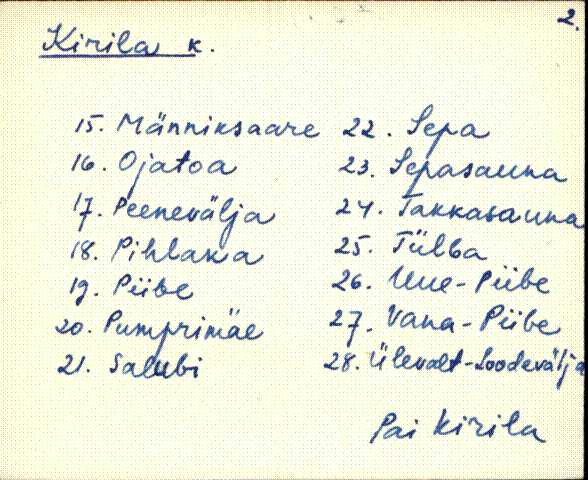 2.
Kirila k.
15. Männiksaare
16. Ojatoa
17. Peenevälja
18. Pihlaka
19. Piibe
20. Pumprimäe
21. Salubi
22. Sepa
23. Sepasauna
24. Takkasauna
25. Tülba
26. Uue-Piibe
27. Vana-Piibe
28. Ülevalt-Loodevälja
Pai Kirila